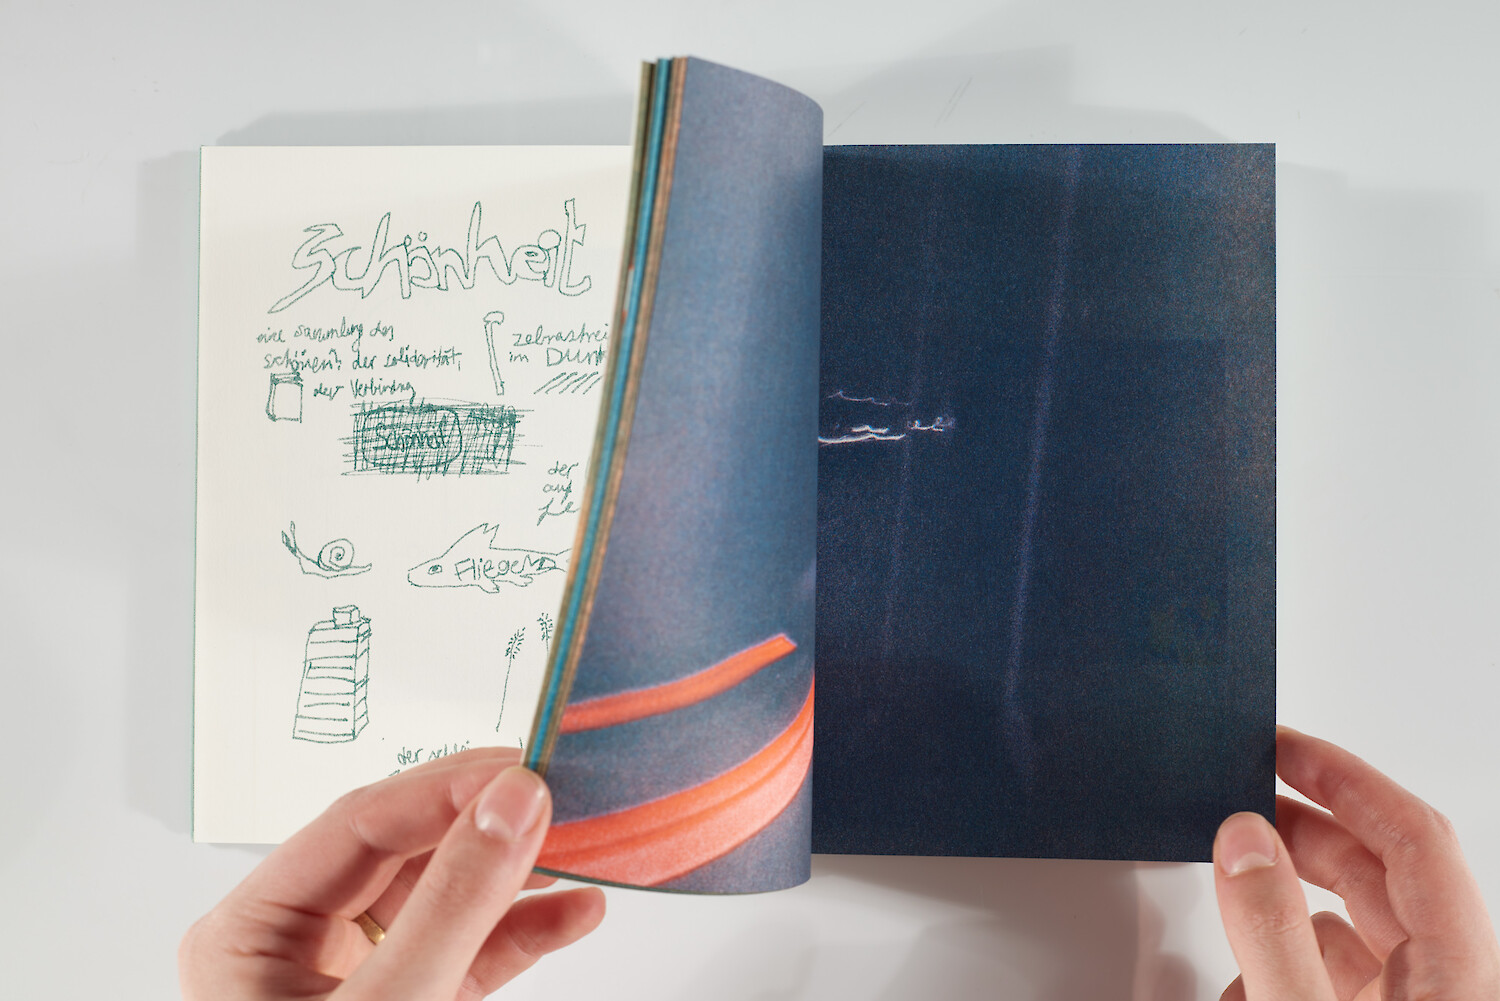 Schönheit
eine sammlung des
schönen, der solidarität,
der Verbindung
zebrastrei
im Dunk
Schönheit
der
auf
Le
Fliegen
der schlei